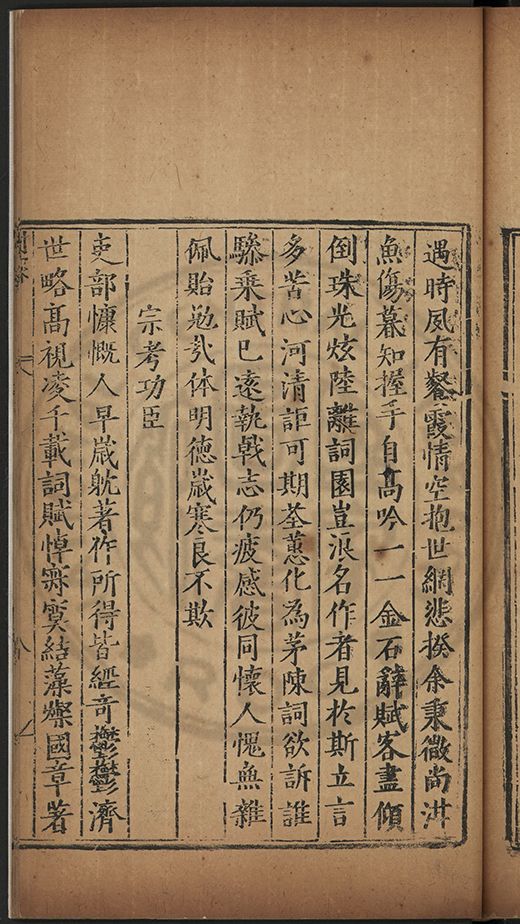 遇時夙有餐霞情空抱世網悲揆余秉微尚洪
魚傷暮知握手自髙吟一一金石辭賦客盡傾
倒珠光炫陸離詞園豈浪名作者見於斯立言
多苦心河清詎可期荃蕙化為茅陳詞欲訴誰
驂乗賦巳逺執戟志仍疲感彼同懷人愧無雜
佩貽勉㢤体明德歳寒良不欺
宗考功臣
吏部慷慨人早歳躭著作所得皆經竒鬱鬱濟
世略髙視凌千載詞賦悼寂寞結藻燦國章著
八